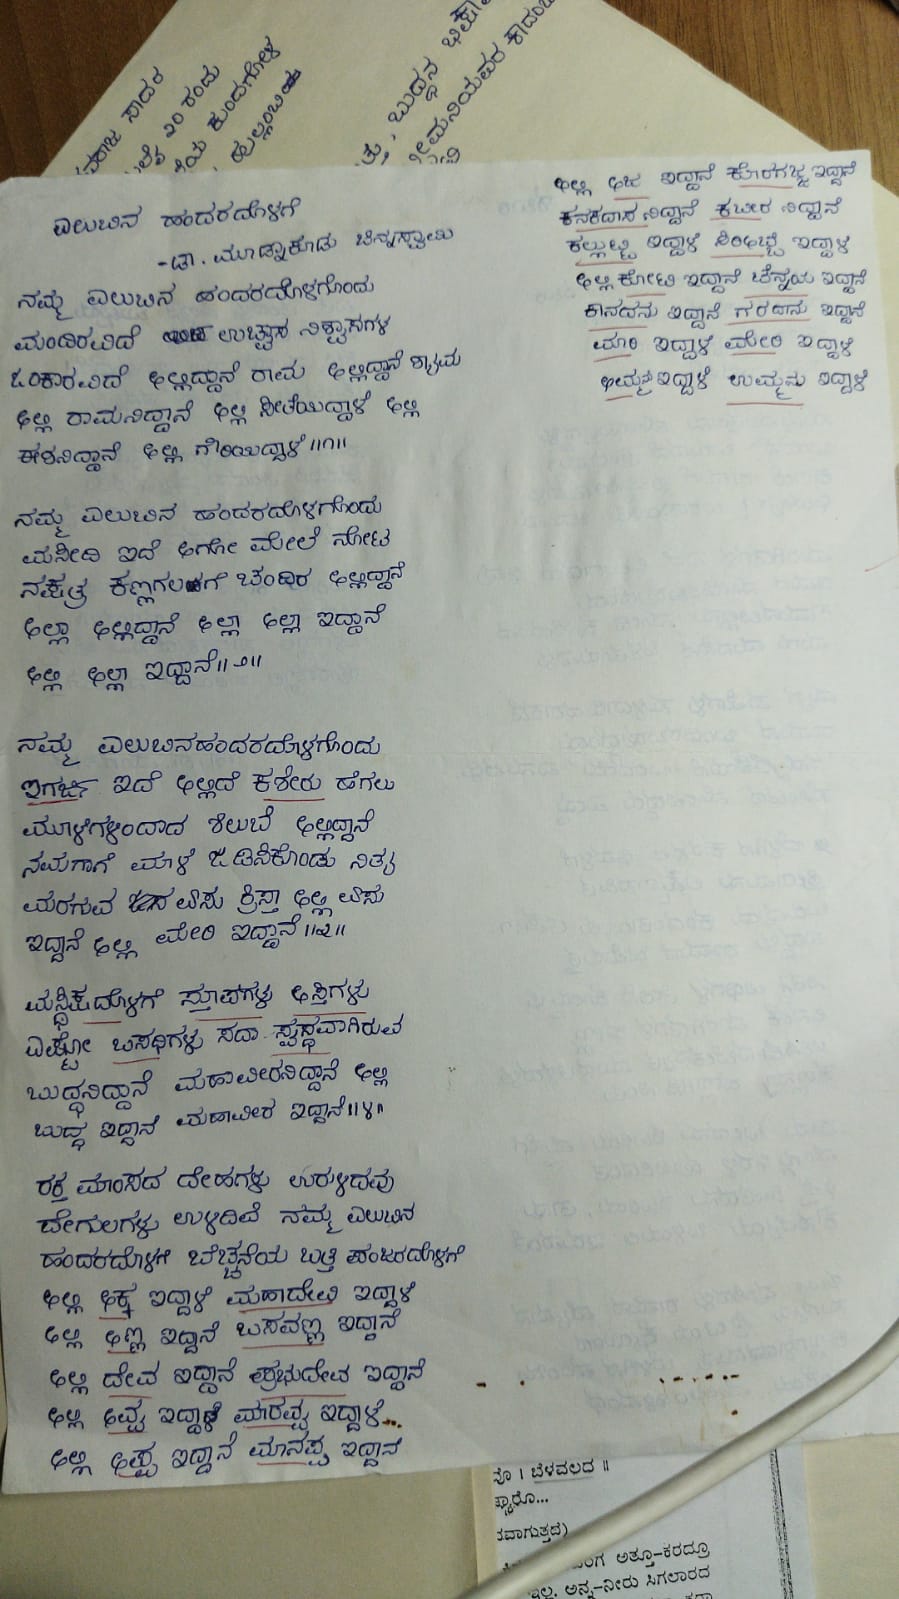 ಎಲುಬಿನ ಹಂದರದೊಳಗೆ
-ಡಾ. ಮೂಡ್ನಾಕೂಡು ಚಿನ್ನಸ್ವಾಮಿ
ನಮ್ಮ ಎಲುಬಿನ ಹಂದರದೊಳಗೊಂದು
ಮಂದಿರವಿದೆ ಉಚ್ವಾಸ ನಿಶ್ವಾಸಗಳ
ಓಂಕಾರವಿದೆ ಅಲ್ಲಿದ್ದಾನೆ ರಾಮ ಅಲ್ಲಿದ್ದಾನೆ ಶ್ಯಾಮ
ಅಲ್ಲಿ ರಾಮನಿದ್ದಾನೆ ಅಲ್ಲಿ ಸೀತೆಯಿದ್ದಾಳೆ ಅಲ್ಲಿ
ಈಶನಿದ್ದಾನೆ ಅಲ್ಲಿ ಗೌರಿಯಿದ್ದಾಳೆ ॥೧॥
ನಮ್ಮ ಎಲುಬಿನ ಹಂದರದೊಳಗೊಂದು
ಮಸೀದಿ ಇದೆ ಅಗೋ ಮೇಲೆ ನೋಟ
ನಕ್ಷತ್ರ ಚಂದಿರ ಅಲ್ಲಿದ್ದಾನೆ
ಅಲ್ಲಾ ಅಲ್ಲಿದ್ದಾನೆ ಅಲ್ಲಾ ಅಲ್ಲಾ ಇದ್ದಾನೆ
ಅಲ್ಲಿ ಅಲ್ಲಾ ಇದ್ದಾನೆ॥೨॥
ನಮ್ಮ ಎಲುಬಿನಹಂದರದೊಳಗೊಂದು
ಇಗರ್ಜಿ ಇದೆ ಅಲ್ಲಿದೆ ಕಶೇರು ಹೆಗಲು
ಮೂಳೆಗಳಿಂದಾದ ಶಿಲುಬೆ ಅಲ್ಲಿದ್ದಾನೆ
ನಮಗಾಗಿ ಮೊಳೆ ಜಡಿಸಿಕೊಂಡು ನಿತ್ಯ
ಮರಗುವ ಏಸು ಕ್ರಿಸ್ತಾ ಅಲ್ಲಿ ಏಸು
ಇದ್ದಾನೆ ಅಲ್ಲಿ ಮೇರಿ ಇದ್ದಾಳೆ ॥೩॥
ಮಸ್ತಿಷ್ಕದೊಳಗೆ ಸ್ತೂಪಗಳು ಅಸ್ತಿಗಳು
ಎಷ್ಟೋ ಬಸದಿಗಳು ಸದಾ ಸ್ವಸ್ಥವಾಗಿರುವ
ಬುದ್ಧನಿದ್ದಾನೆ ಮಹಾವೀರನಿದ್ದಾನೆ ಅಲ್ಲಿ
ಬುದ್ಧ ಇದ್ದಾನೆ ಮಹಾವೀರ ಇದ್ದಾನೆ॥೪॥
ರಕ್ತ ಮಾಂಸದ ದೇಹಗಳು ಉರುಳಿದವು
ದೇಗುಲಗಳು ಉಳಿದಿವೆ ನಮ್ಮ ಎಲುಬಿನ
ಹಂದರದೊಳಗೆ ಬೆಚ್ಚನೆಯ ಬುತ್ತಿ ಪಂಜರದೊಳಗೆ
ಅಲ್ಲಿ ಅಕ್ಕ ಇದ್ದಾಳೆ ಮಹಾದೇವಿ ಇದ್ದಾಳೆ
ಅಲ್ಲಿ ಅಣ್ಣ ಇದ್ದಾನೆ ಬಸವಣ್ಣ ಇದ್ದಾನೆ
ಅಲ್ಲಿ ದೇವ ಇದ್ದಾನೆ ಪ್ರಭುದೇವ ಇದ್ದಾನೆ
ಅಲ್ಲಿ ಅವ್ವ ಇದ್ದಾಳೆ ಮಾರವ್ವ ಇದ್ದಾಳೆ
ಅಲ್ಲಿ ಅಪ್ಪ ಇದ್ದಾನೆ ಮಾನಪ್ಪ ಇದ್ದಾನೆ
ಅಲ್ಲಿ ಅಜ ಇದ್ದಾನೆ ಕೊರಗಜ್ಜ ಇದ್ದಾನೆ
ಕನಕದಾಸ ನಿದ್ದಾನೆ ಕಬೀರ ನಿದ್ದಾನೆ
ಕಲ್ಲುಟ್ಟಿ ಇದ್ದಾಳೆ ಇದ್ದಾಳೆ
ಅಲ್ಲಿ ಕೋಟಿ ಇದ್ದಾನೆ ಚೆನ್ನಯ ಇದ್ದಾನೆ
ಕಾನದನು ಇದ್ದಾನೆ ಇದ್ದಾನೆ
ಮಾರಿ ಇದ್ದಾಳೆ ಮೇರಿ ಇದ್ದಾಳೆ
ಇದ್ದಾಳೆ ಉಮ್ಮನು ಇದ್ದಾಳೆ
ಬೆಳವಲದ ॥
ನವಾಗುತ್ತದೆ)
ಅತ್ತೂ-ಕರದ್ರೂ
ಅನ್ನ-ನೀರು ಸಿಗಲಾರದ